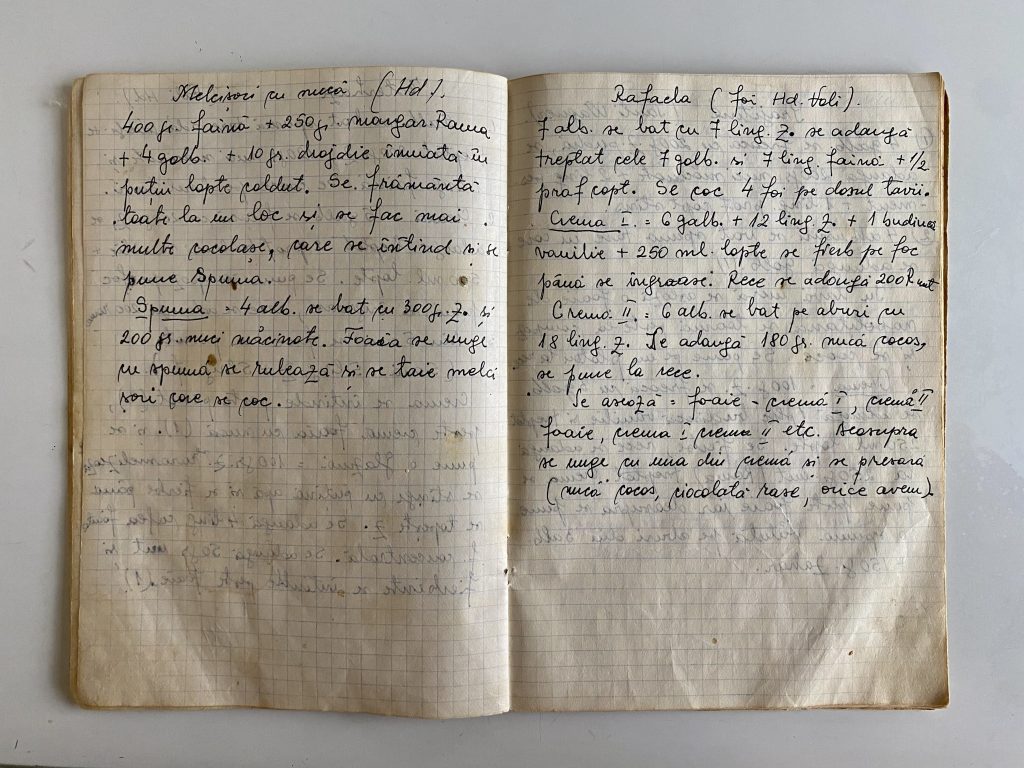 Melcisori cu nucă (Hd).
400 gr. faină + 250 gr. margar. Rama
+ 4 galb. + 10 gr. drojdie inmuiată în
puțin lapte căldut. Se frământă
toate la un loc și se fac mai
multe cocolașe, care se întind și se
pune Spuma.
Spuma = 4 alb. se bat cu 300 gr. z. și
200 gr. nuci măcinate. Foaia se unge
cu spumă se rulează și se taie melci
șori care se coc.
Rafaela (foi. Hd. Voli).
7 alb. se bat cu 7 ling. z. se adaugă
treptat cele 7 galb. si 7 ling faină + 1/2
praf copt. Se coc 4 foi pe dosul tavii.
Crema I. = 6 galb. + 12 ling z. + 1 budinca
vanilie + 250 ml. lapte se fierb pe foc
până se ingroase. Rece se adaugă 200 R unt
Crema II. = 6 alb. se bat pe aburi cu
18 ling. z. Se adaugă 180 gr. nucă cocos,
se pune la rece.
Se asează = foaie - cremă I, cremă II
foaie, crema I crema II etc. Deasupra
se unge cu una din cremă si se presară
(nucă cocos, ciocolată rase, orice avem)